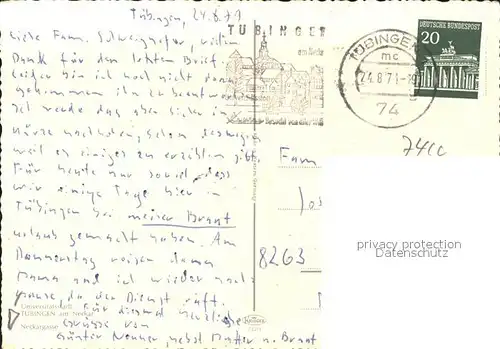 Tübingen, 24.8.71
Liebe Fam. Schweighofer, vielen
Dank für den letzten Brief.
Leider bin ich noch nicht dazu
gekommen ihn zu beantworten.
Ich werde das aber sicher in
Kürze nachholen, schon deswegen
weil es einiges zu erzählen gibt.
Für heute nur soviel dass
wir einige Tage hier in
Tübingen bei meiner Braut
Urlaub gemacht haben. Am
Donnerstag reisen dann
Mama und ich wieder nach
Hause, da der Dienst ruft.
Für diesmal herzliche
Grüsse von
Günter, nebst Mutter u. Braut
Universitätsstadt
TÜBINGEN am Neckar
Neckarpartie
TÜBINGEN
am Neckar
TÜBINGEN
mc
24.8.71
74
DEUTSCHE BUNDESPOST
20
7400
Fam
8263
privacy protection
Datenschutz